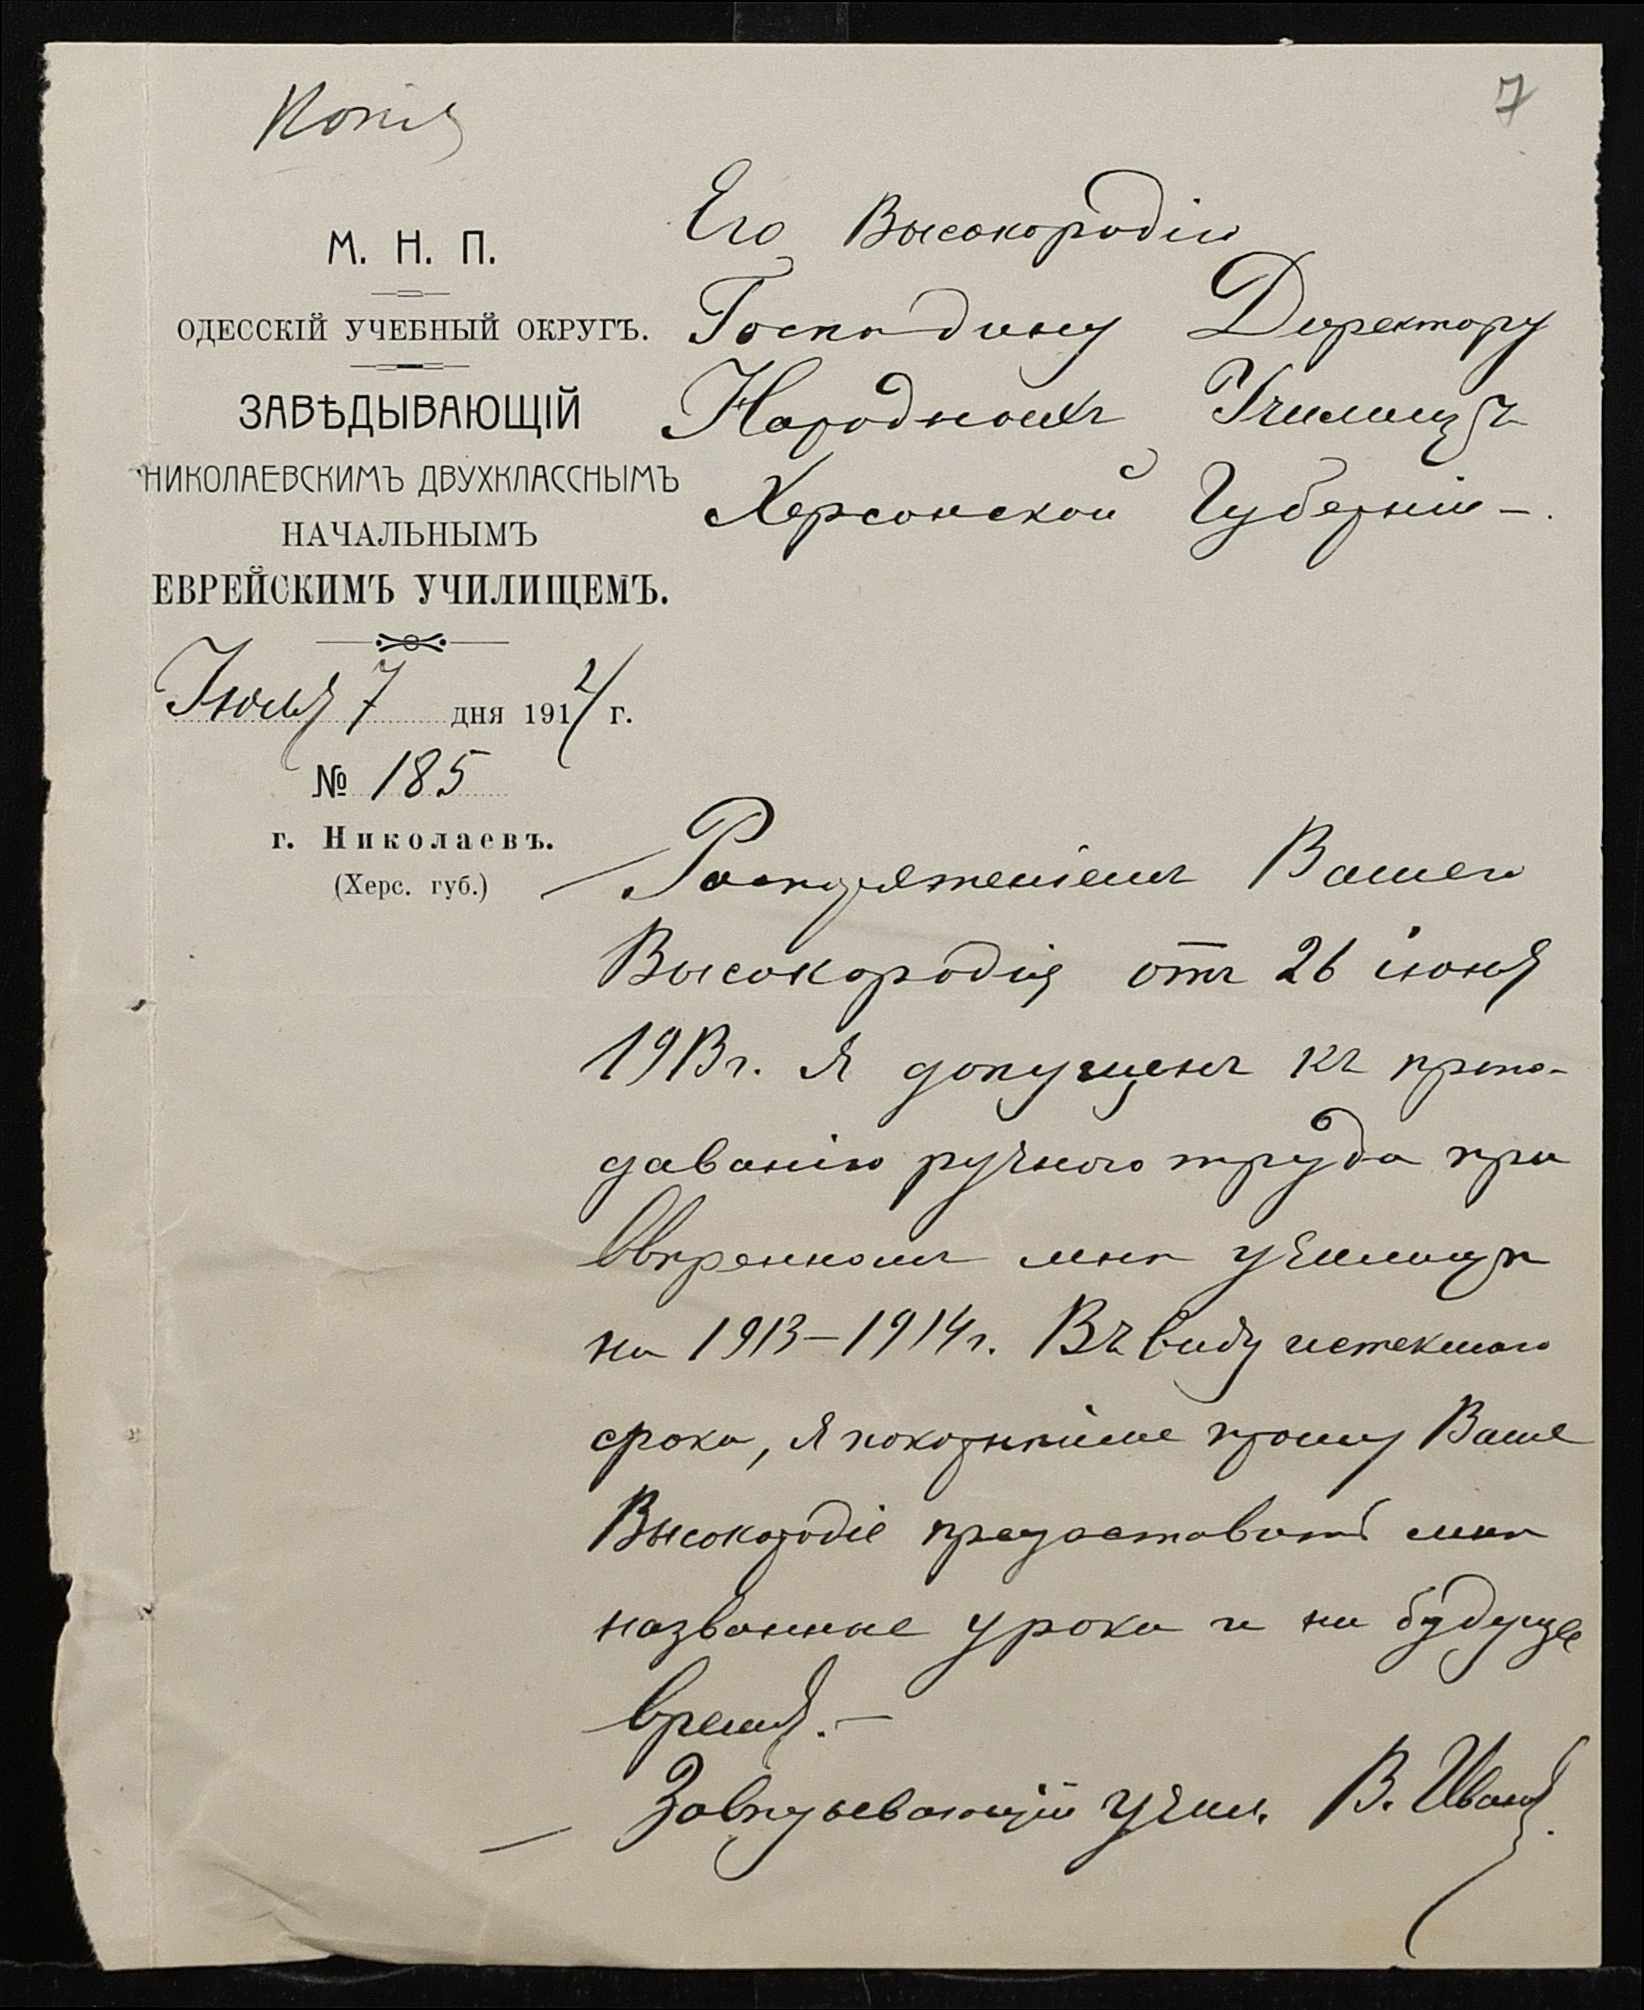 Копія
7
М. Н. П.
ОДЕССКІЙ УЧЕБНЫЙ ОКРУГЪ.
ЗАВѢДЫВАЮЩІЙ
НИКОЛАЕВСКИМЪ ДВУХКЛАССНЫМЪ
НАЧАЛЬНЫМЪ
ЕВРЕЙСКИМЪ УЧИЛИЩЕМЪ.
Іюля 7 дня 1914 г.
№ 185
г. Николаевъ.
(Херс. губ.)
Его Высокородію
Господину Директору
Народныхъ Училищъ
Херсонской Губерніи –.
Распоряженіемъ Вашего
Высокородія отъ 26 іюня
1913 г. я допущенъ къ препо-
даванію ручного труда при
ввѣренномъ мнѣ училищѣ
на 1913–1914 г. Въ виду истекшаго
срока, я покорнѣйше прошу Ваше
Высокородіе предоставить мнѣ
названные уроки и на будущее
время. –
Завѣдывающій учил. В.